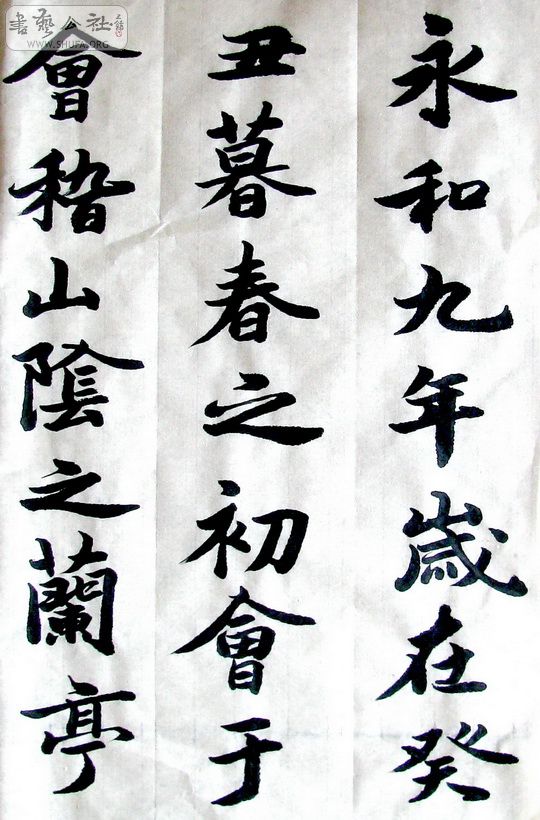 永和九年歲在癸
丑暮春之初會于
會稽山陰之蘭亭
書藝公社
WWW.SHUFA.ORG